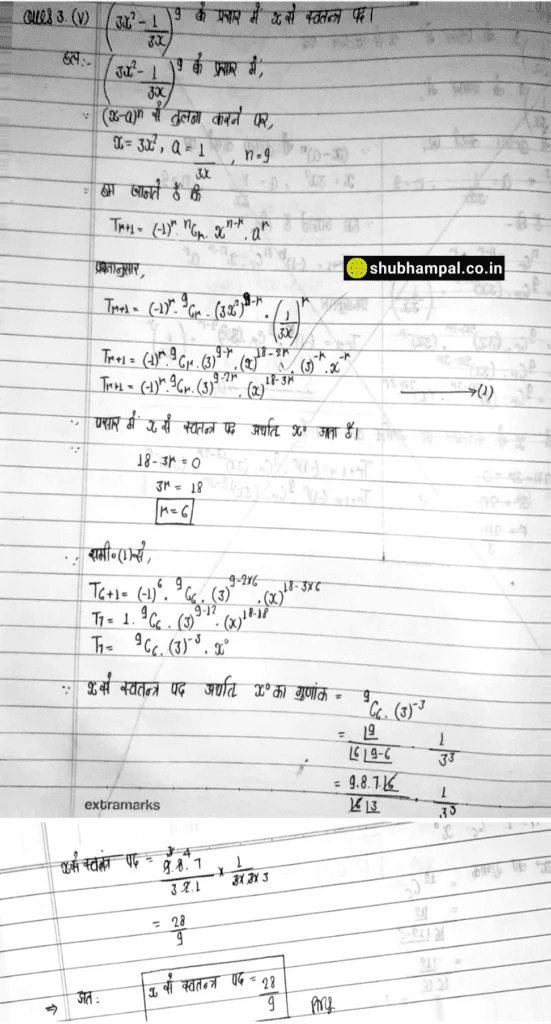 Ques 3. (v) (3x² - 1/3x)⁹ के प्रसार में x से स्वतन्त्र पद।
हल:- (3x² - 1/3x)⁹ के प्रसार में,
∵ (x-a)ⁿ से तुलना करने पर,
x = 3x², a = 1/3x, n = 9
∵ हम जानते हैं कि
Tr+1 = (-1)ʳ · ⁿCr · xⁿ⁻ʳ · aʳ
प्रश्नानुसार,
shubhampal.co.in
Tr+1 = (-1)ʳ · ⁹Cr · (3x²)⁹⁻ʳ · (1/3x)ʳ
Tr+1 = (-1)ʳ · ⁹Cr · (3)⁹⁻ʳ · (x)¹⁸⁻²ʳ · (3)⁻ʳ · x⁻ʳ
Tr+1 = (-1)ʳ · ⁹Cr · (3)⁹⁻²ʳ · (x)¹⁸⁻³ʳ ⟶ (1)
∵ प्रसार में x से स्वतन्त्र पद अर्थात x⁰ आता है।
∵ 18 - 3r = 0
3r = 18
r = 6
∴ समी० (1) से,
T6+1 = (-1)⁶ · ⁹C₆ · (3)⁹⁻²ˣ⁶ · (x)¹⁸⁻³ˣ⁶
T₇ = 1 · ⁹C₆ · (3)⁹⁻¹² · (x)¹⁸⁻¹⁸
T₇ = ⁹C₆ · (3)⁻³ · x⁰
∵ x से स्वतन्त्र पद अर्थात x⁰ का गुणांक = ⁹C₆ · (3)⁻³
= |9 / |6 |9-6 · 1/3³
= 9.8.7.|6 / |6 |3 · 1/3³
extramarks
x से स्वतंत्र पद = 9.8.7 / 3.2.1 × 1 / 3×3×3
= 28/9
⇒ अत: x से स्वतन्त्र पद = 28/9 Ans